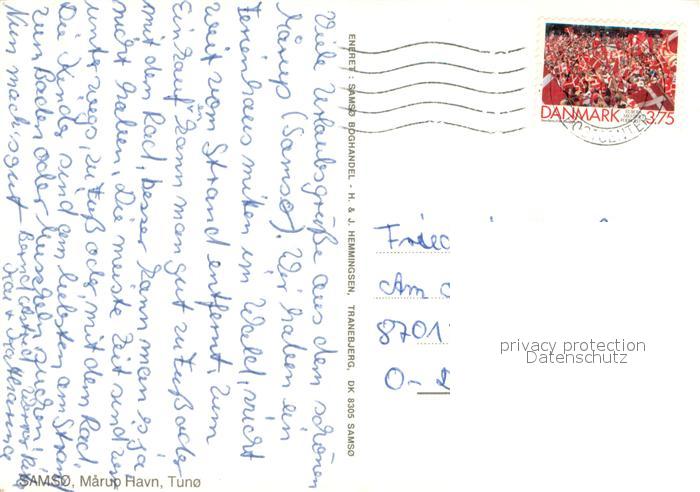 Viele Urlaubsgrüße aus dem schönen
Mårup (Samsø). Wir haben ein
Ferienhaus mitten im Wald, nicht
weit vom Strand entfernt. Zum
Einkauf kann man gut zu Fuß oder
mit dem Rad, besser kann man es ja
nicht haben. Die meiste Zeit sind wir
unterwegs, zu Fuß oder mit dem Rad.
Die Kinder sind am liebsten am Strand
zum Baden oder Muscheln suchen.
Nun macht's gut
Kai + Katharina
ENERET: SAMSØ BOGHANDEL - H. & J. HEMMINGSEN, TRANEBJERG, DK 8305 SAMSØ
SAMSØ, Mårup Havn, Tunø
DANMARK 3.75
Am
8701
O-
privacy protection
Datenschutz